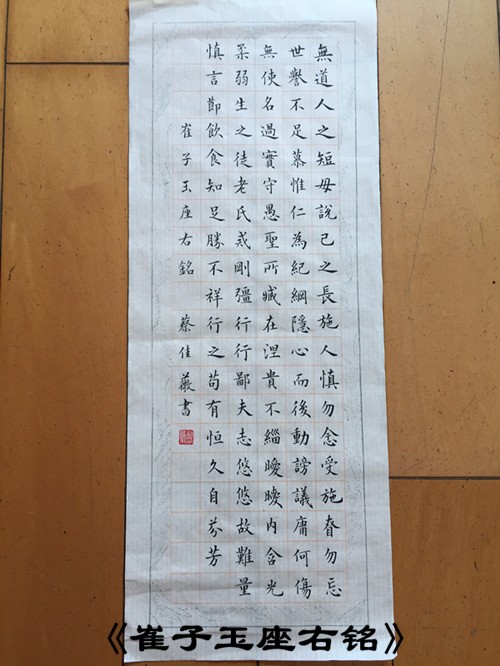 無道人之短毋說己之長施人慎勿念受施眘勿忘
世譽不足慕惟仁為紀綱隱心而後動謗議庸何傷
無使名過實守愚聖所臧在涅貴不緇曖曖內含光
柔弱生之徒老氏戒剛彊行行鄙夫志悠悠故難量
慎言節飲食知足勝不祥行之苟有恒久自芬芳
崔子玉座右銘 蔡佳薇書
《崔子玉座右铭》